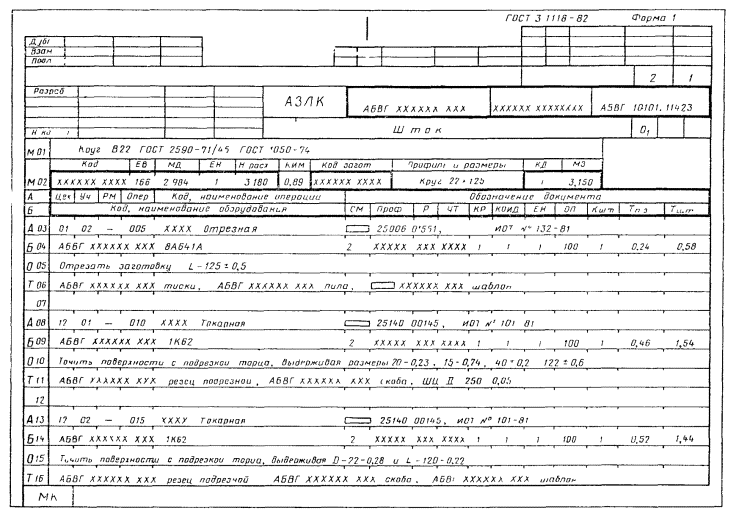 ГОСТ 3.1118-82 Форма 1
Дубл
Взам
Подл
2 1
Разраб
АЗЛК АБВГ XXXXXX XXX XXXXXX XXXXXXXX АБВГ 10101.11423
Н.ко
Шток О1
М 01 Круг В22 ГОСТ 2590-71/45 ГОСТ 1050-74
Код ЕВ МД ЕН Н расх КИМ Код загот Профиль и размеры КД МЗ
М 02 XXXXXX XXXX 166 2 984 1 3 180 0,89 XXXXXX XXXX Круг 22×125 1 3,150
А Цех Уч РМ Опер Код, наименование операции Обозначение документа
Б Код, наименование оборудования СМ Проф Р УТ КР КОИД ЕН ОП Кшт Тпз Тшт
А 03 01 02 — 005 XXXX Отрезная 25006 01551, ИОТ № 132-81
Б 04 АББГ XXXXXX XXX 8АБ41А 2 XXXXX XXX XXXX 1 1 1 100 1 0,24 0,58
О 05 Отрезать заготовку L-125±0,5
Т 06 АБВГ XXXXXX XXX тиски, АБВГ XXXXXX XXX пила, XXXXXX XXX шаблон
07
А 08 12 01 — 010 XXXX Токарная 25140 00145, ИОТ № 101 81
Б 09 АБВГ XXXXXX XXX 1К62 2 XXXXX XXX XXXX 1 1 1 100 1 0,46 1,54
О 10 Точить поверхности с подрезкой торца, выдерживая размеры 20-0,23, 15-0,74, 40±0,2 122±0,6
Т 11 АБВГ XXXXXX XXX резец подрезной, АБВГ XXXXXX XXX скоба, ШЦ II 250 0,05
12
А 13 12 02 — 015 XXXX Токарная 25140 00145, ИОТ № 101-81
Б 14 АБВГ XXXXXX XXX 1К62 2 XXXXX XXX XXXX 1 1 1 100 1 0,52 1,44
О 15 Точить поверхности с подрезкой торца, выдерживая D-22-0,28 и L-120-0,22
Т 16 АБВГ XXXXXX XXX резец подрезной АБВГ XXXXXX XXX скоба, АБВГ XXXXXX XXX шаблон
МК